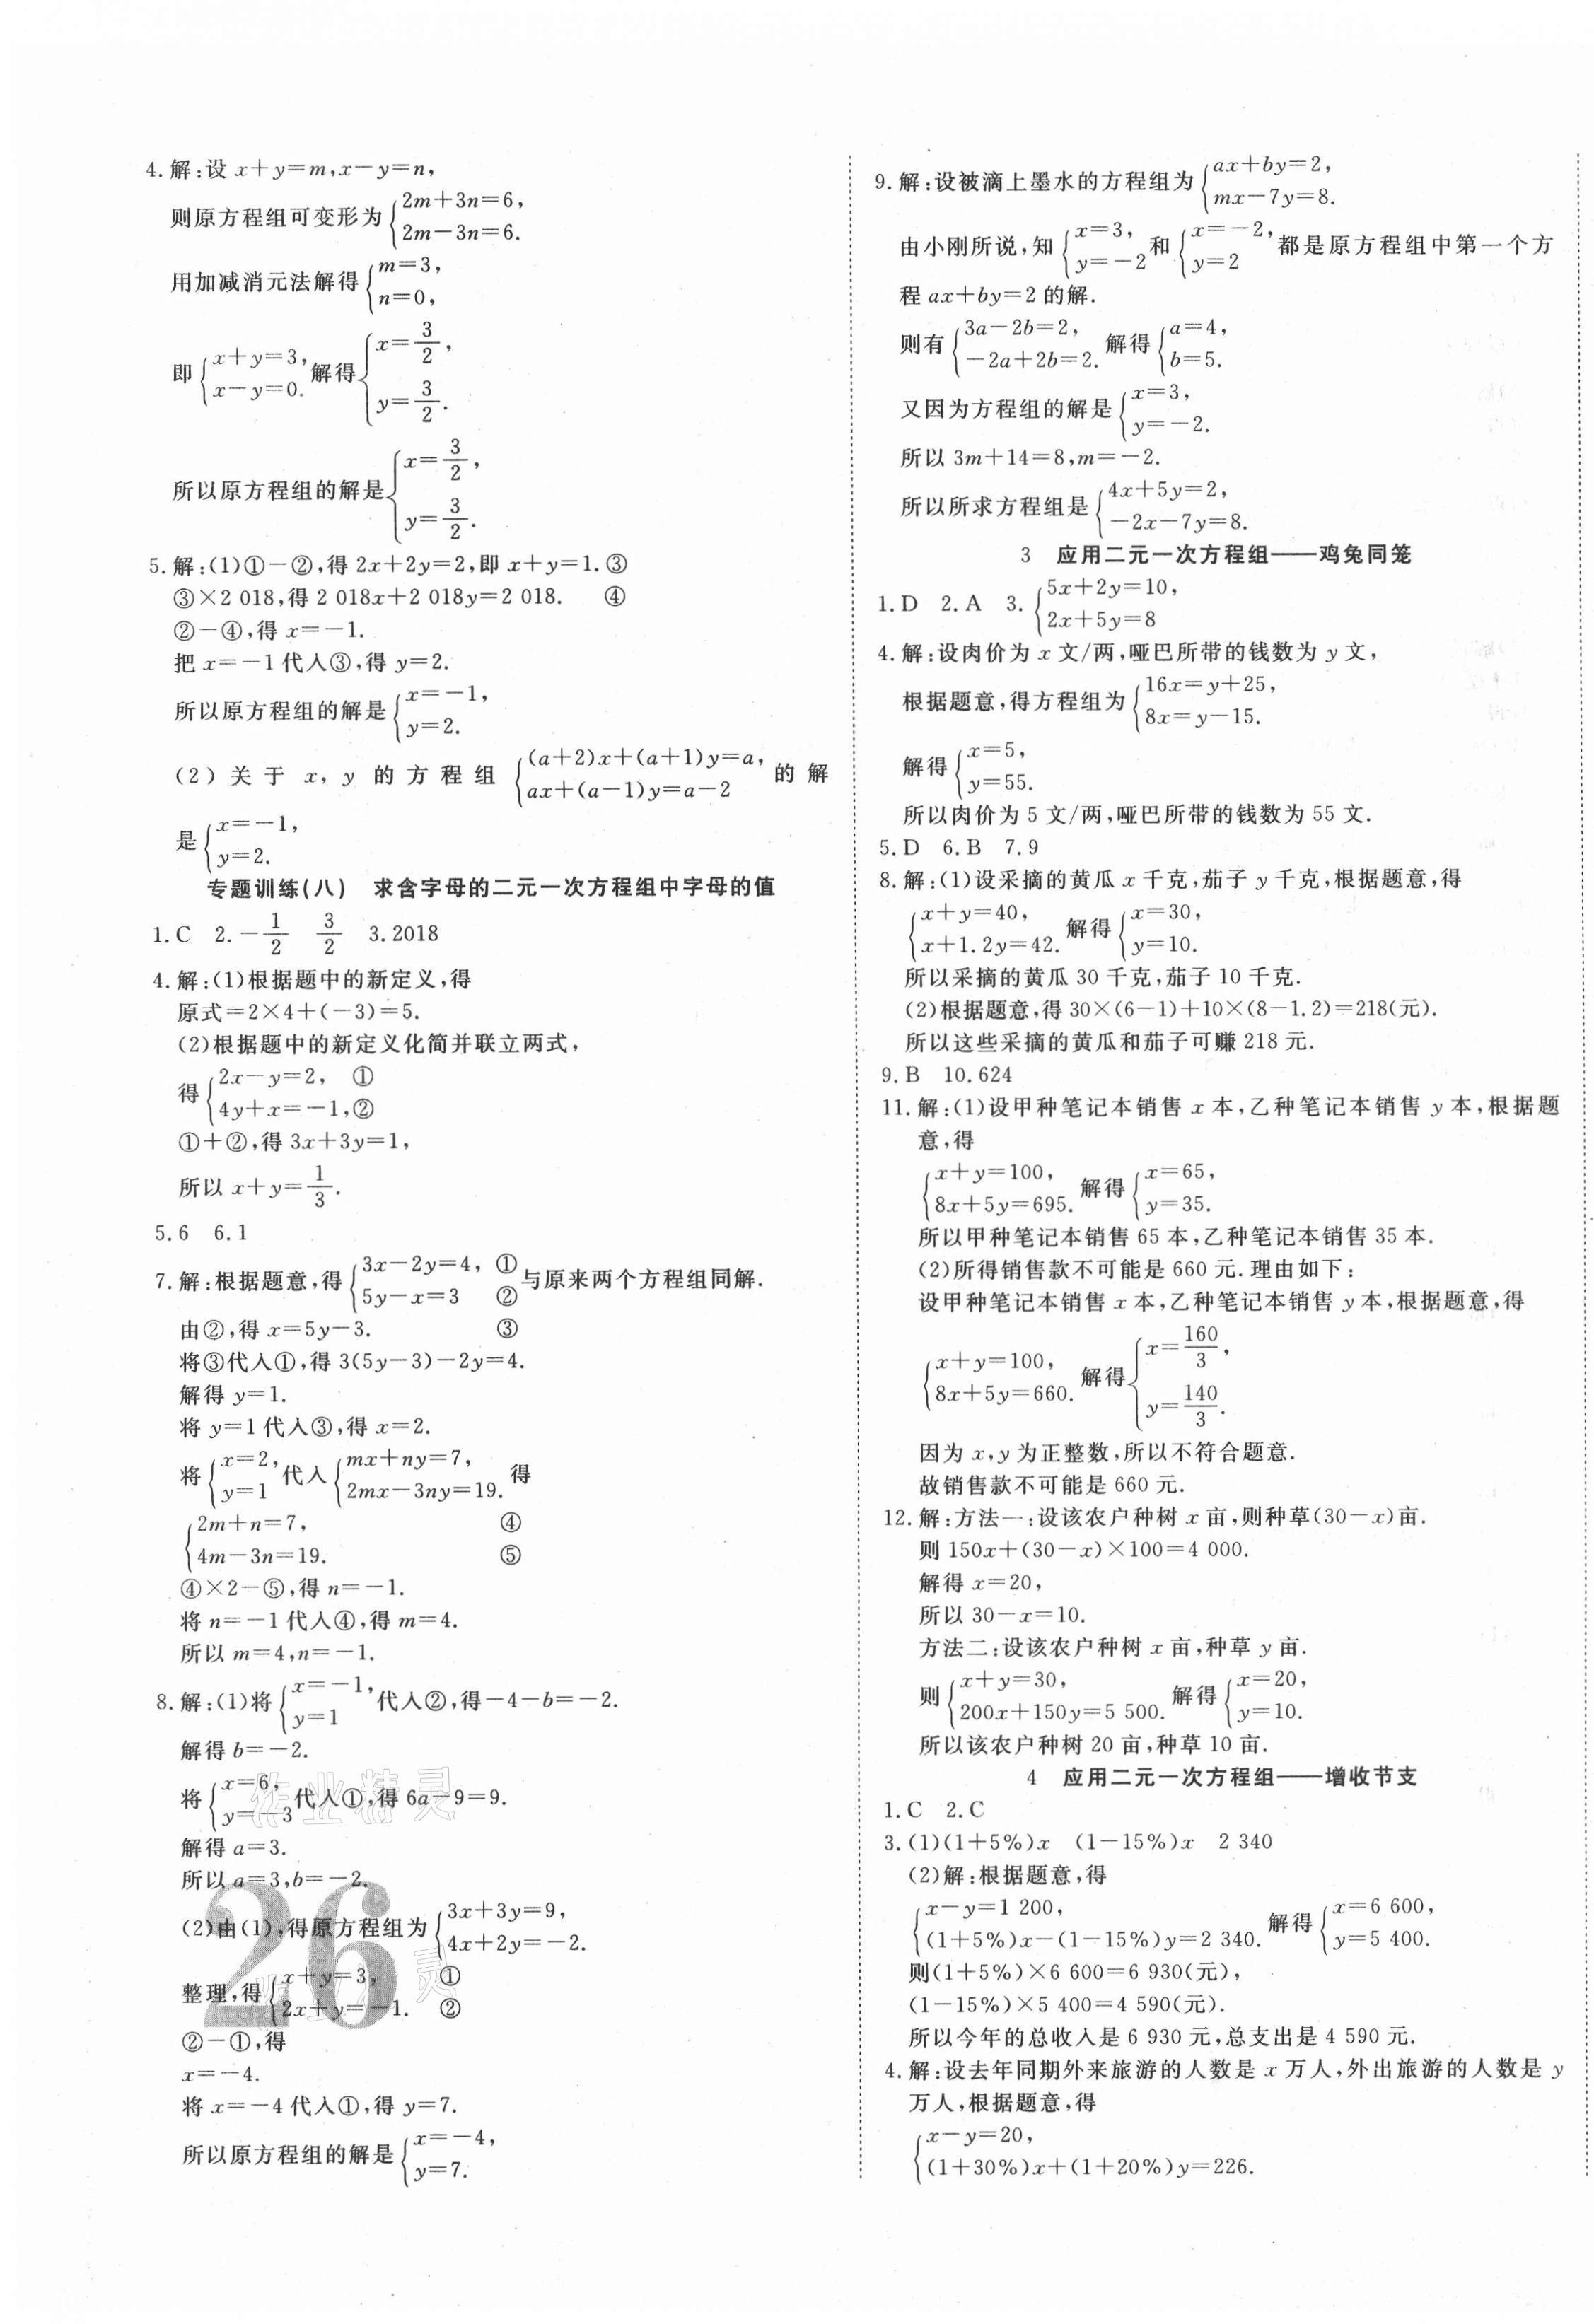 4.解:设 x+y=m,x-y=n,
则原方程组可变形为{2m+3n=6,
2m-3n=6.
用加减消元法解得{m=3,
n=0,
即{x+y=3,
x-y=0. 解得{x=3/2,
y=3/2.
所以原方程组的解是{x=3/2,
y=3/2.
5.解:(1)①-②,得 2x+2y=2,即 x+y=1.③
③×2 018,得 2 018x+2 018y=2 018. ④
②-④,得 x=-1.
把 x=-1代入③,得 y=2.
所以原方程组的解是{x=-1,
y=2.
(2)关于 x, y 的方程组{(a+2)x+(a+1)y=a,
ax+(a-1)y=a-2 的解
是{x=-1,
y=2.
专题训练(八) 求含字母的二元一次方程组中字母的值
1.C 2.-1/2 3/2 3.2018
4.解:(1)根据题中的新定义,得
原式=2×4+(-3)=5.
(2)根据题中的新定义化简并联立两式,
得{2x-y=2, ①
4y+x=-1,②
①+②,得 3x+3y=1,
所以 x+y=1/3.
5.6 6.1
7.解:根据题意,得{3x-2y=4, ①
5y-x=3 ② 与原来两个方程组同解.
由②,得 x=5y-3. ③
将③代入①,得 3(5y-3)-2y=4.
解得 y=1.
将 y=1代入③,得 x=2.
将{x=2,
y=1 代入{mx+ny=7,
2mx-3ny=19. 得
{2m+n=7, ④
4m-3n=19. ⑤
④×2-⑤,得 n=-1.
将 n=-1代入④,得 m=4.
所以 m=4,n=-1.
8.解:(1)将{x=-1,
y=1 代入②,得-4-b=-2.
解得 b=-2.
将{x=6,
y=-3 代入①,得 6a-9=9.
解得 a=3.
所以 a=3,b=-2.
(2)由(1),得原方程组为{3x+3y=9,
4x+2y=-2.
整理,得{x+y=3, ①
2x+y=-1. ②
②-①,得
x=-4.
将 x=-4代入①,得 y=7.
所以原方程组的解是{x=-4,
y=7.
作业精灵
26
9.解:设被滴上墨水的方程组为{ax+by=2,
mx-7y=8.
由小刚所说,知{x=3,
y=-2 和{x=-2,
y=2 都是原方程组中第一个方
程 ax+by=2 的解.
则有{3a-2b=2,
-2a+2b=2. 解得{a=4,
b=5.
又因为方程组的解是{x=3,
y=-2.
所以 3m+14=8,m=-2.
所以所求方程组是{4x+5y=2,
-2x-7y=8.
3 应用二元一次方程组——鸡兔同笼
1.D 2.A 3.{5x+2y=10,
2x+5y=8
4.解:设肉价为 x 文/两,哑巴所带的钱数为 y 文,
根据题意,得方程组为{16x=y+25,
8x=y-15.
解得{x=5,
y=55.
所以肉价为 5 文/两,哑巴所带的钱数为 55 文.
5.D 6.B 7.9
8.解:(1)设采摘的黄瓜 x 千克,茄子 y 千克,根据题意,得
{x+y=40,
x+1.2y=42. 解得{x=30,
y=10.
所以采摘的黄瓜 30 千克,茄子 10 千克.
(2)根据题意,得 30×(6-1)+10×(8-1.2)=218(元).
所以这些采摘的黄瓜和茄子可赚 218 元.
9.B 10.624
11.解:(1)设甲种笔记本销售 x 本,乙种笔记本销售 y 本,根据题
意,得
{x+y=100,
8x+5y=695. 解得{x=65,
y=35.
所以甲种笔记本销售 65 本,乙种笔记本销售 35 本.
(2)所得销售款不可能是 660 元.理由如下:
设甲种笔记本销售 x 本,乙种笔记本销售 y 本,根据题意,得
{x+y=100,
8x+5y=660. 解得{x=160/3,
y=140/3.
因为 x,y 为正整数,所以不符合题意.
故销售款不可能是 660 元.
12.解:方法一:设该农户种树 x 亩,则种草(30-x)亩.
则 150x+(30-x)×100=4 000.
解得 x=20,
所以 30-x=10.
方法二:设该农户种树 x 亩,种草 y 亩.
则{x+y=30,
200x+150y=5 500. 解得{x=20,
y=10.
所以该农户种树 20 亩,种草 10 亩.
4 应用二元一次方程组——增收节支
1.C 2.C
3.(1)(1+5%)x (1-15%)x 2 340
(2)解:根据题意,得
{x-y=1 200,
(1+5%)x-(1-15%)y=2 340. 解得{x=6 600,
y=5 400.
则(1+5%)×6 600=6 930(元),
(1-15%)×5 400=4 590(元).
所以今年的总收入是 6 930 元,总支出是 4 590 元.
4.解:设去年同期外来旅游的人数是 x 万人,外出旅游的人数是 y
万人,根据题意,得
{x-y=20,
(1+30%)x+(1+20%)y=226.